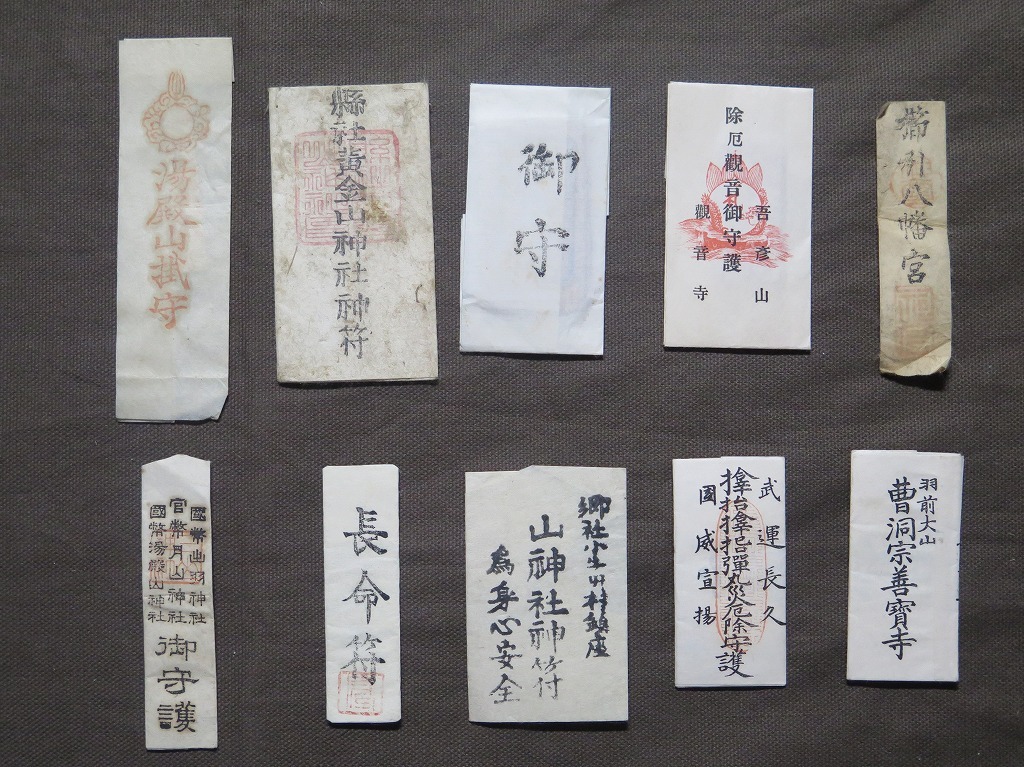 湯殿山掛守
縣社黃金山神社神符
御守
除厄觀音御守護
吾彦山
觀音寺
帶引八幡宮
國幣出羽神社
官幣月山神社
國幣湯殿山神社
御守護
長命符
山神社神符
為身心安全
武運長久
彈丸災厄除守護
國威宣揚
羽前大山
曹洞宗善寶寺